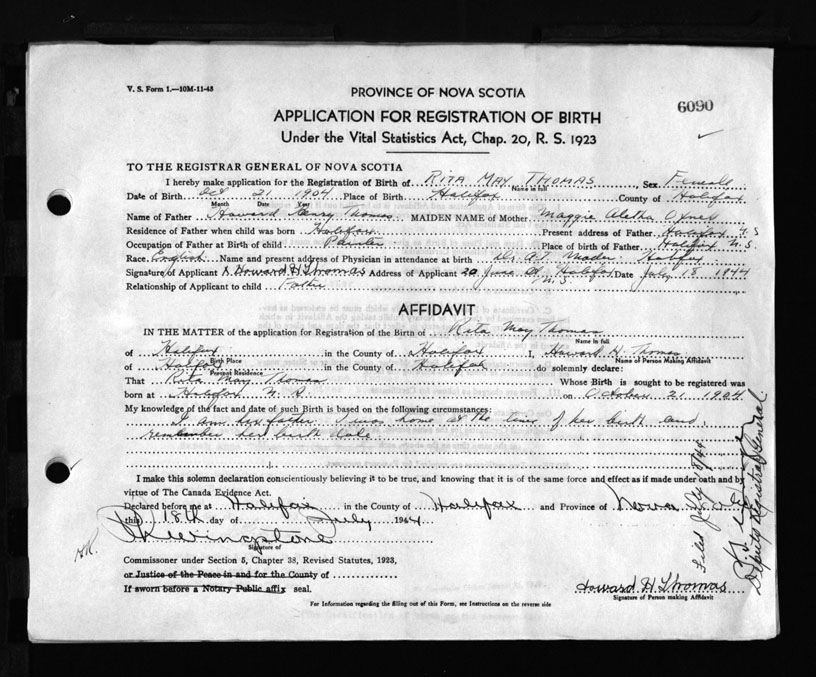 V. S. Form 1.—10M-11-43
PROVINCE OF NOVA SCOTIA
6090
APPLICATION FOR REGISTRATION OF BIRTH
Under the Vital Statistics Act, Chap. 20, R. S. 1923
TO THE REGISTRAR GENERAL OF NOVA SCOTIA
I hereby make application for the Registration of Birth of Rita May Thomas, Sex Female
Name in full
Date of Birth Oct 21 1904 Place of Birth Halifax County of Halifax
Month Date Year
Name of Father Howard Henry Thomas MAIDEN NAME of Mother Maggie Aletha Oxner
Residence of Father when child was born Halifax Present address of Father Halifax N.S
Occupation of Father at Birth of child Painter Place of birth of Father Halifax N.S.
Race English Name and present address of Physician in attendance at birth Dr. A.T. Mader. Halifax
Signature of Applicant Howard H Thomas Address of Applicant 20 June St Halifax N.S Date July 18 1944
Relationship of Applicant to child Father
AFFIDAVIT
IN THE MATTER of the application for Registration of the Birth of Rita May Thomas
Name in full
of Halifax in the County of Halifax I, Howard H. Thomas
Birth Place Name of Person Making Affidavit
of Halifax in the County of Halifax do solemnly declare:
Present Residence
That Rita May Thomas Whose Birth is sought to be registered was
born at Halifax N. S. on October 21 1904
My knowledge of the fact and date of such Birth is based on the following circumstances:
I am her father. I was home at the time of her birth and
remember her birth date.
I make this solemn declaration conscientiously believing it to be true, and knowing that it is of the same force and effect as if made under oath and by
virtue of The Canada Evidence Act.
Declared before me at Halifax in the County of Halifax and Province of Nova Scotia
this 18th day of July 1944
Livingstone
Signature of
Commissioner under Section 5, Chapter 38, Revised Statutes, 1923,
or Justice of the Peace in and for the County of
If sworn before a Notary Public affix seal.
Howard H Thomas
Signature of Person making Affidavit
For Information regarding the filling out of this Form, see Instructions on the reverse side
Filed July 1944
Deputy Registrar General